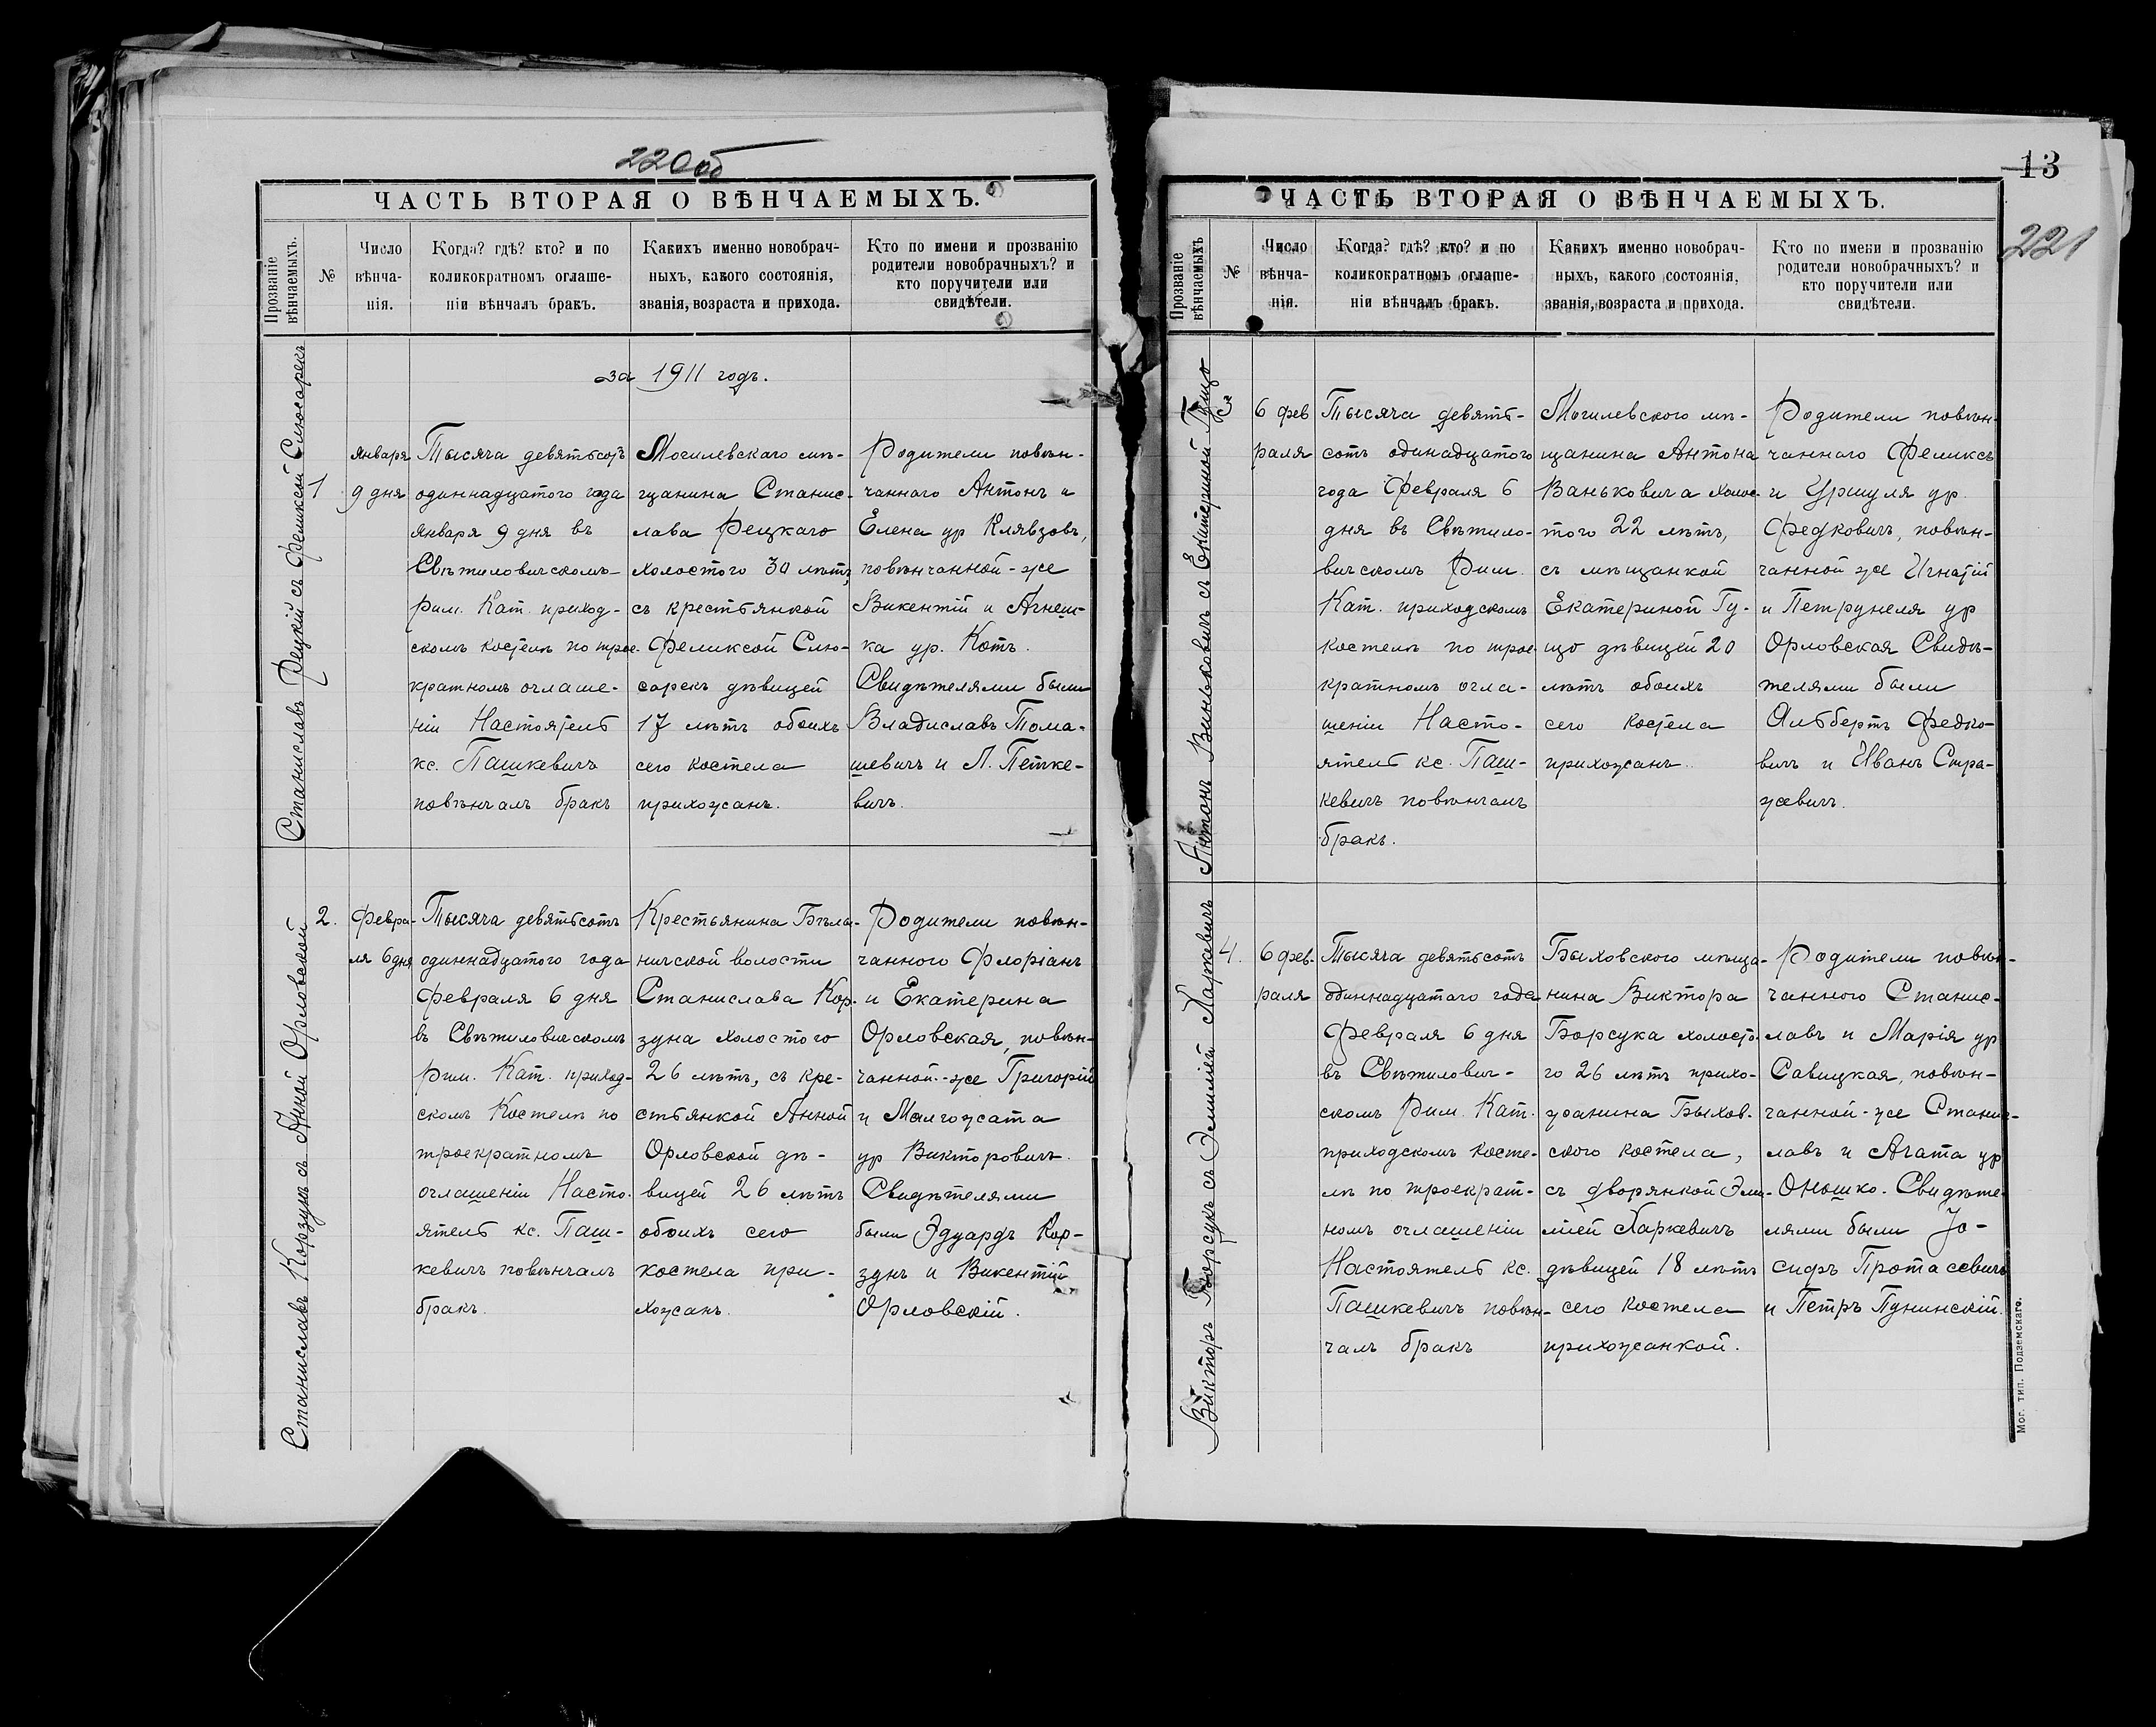 220 об
ЧАСТЬ ВТОРАЯ О ВѢНЧАЕМЫХЪ.
Прозваніе
вѣнчаемыхъ.
№
Число
вѣнча-
нія.
Когда? гдѣ? кто? и по
коликократномъ оглаше-
ніи вѣнчалъ бракъ.
Какихъ именно новобрач-
ныхъ, какого состоянія,
званія, возраста и прихода.
Кто по имени и прозванію
родители новобрачныхъ? и
кто поручители или
свидѣтели.
за 1911 годъ.
Станиславъ Рецкій съ Феликсой Слюсарекъ
1
января
9 дня
Тысяча девятьсотъ
одиннадцатого года
января 9 дня въ
Свѣтиловичскомъ
Рим. Кат. приход-
скомъ костелѣ по трое-
кратномъ оглаше-
ніи Настоятель
кс. Пашкевичъ
повѣнчалъ бракъ
Могилевскаго мѣ-
щанина Станис-
лава Рецкаго
холостого 30 лѣтъ
съ крестьянкой
Феликсой Слю-
сарекъ дѣвицей
17 лѣтъ обоихъ
сего костела
прихожанъ.
Родители повѣн-
чанного Антонъ и
Елена ур Клявзовъ,
повѣнчанной-же
Викентій и Агнеш-
ка ур. Котъ.
Свидѣтелями были
Владиславъ Тома-
шевичъ и Л. Петке-
вичъ.
Станиславъ Корзунъ съ Анной Орловской
2.
Февра-
ля 6 дня
Тысяча девятьсотъ
одиннадцатого года
Февраля 6 дня
въ Свѣтиловичскомъ
Рим. Кат. приход-
скомъ Костелѣ по
троекратномъ
оглашеніи Насто-
ятель кс. Паш-
кевичъ повѣнчалъ
бракъ.
Крестьянина Бѣлы-
ничской волости
Станислава Кор-
зуна холостого
26 лѣтъ, съ кре-
стьянкой Анной
Орловской дѣ-
вицей 26 лѣтъ
обоихъ сего
костела при-
хожанъ.
Родители повѣн-
чанного Флоріанъ
и Екатерина
Орловская, повѣн-
чанной-же Григорій
и Малгожата
ур Викторовичъ.
Свидѣтелями
были Эдуардъ Кор-
зунъ и Викентій
Орловскій.
13
221
ЧАСТЬ ВТОРАЯ О ВѢНЧАЕМЫХЪ.
Прозваніе
вѣнчаемыхъ
№
Число
вѣнча-
нія.
Когда? гдѣ? кто? и по
коликократномъ оглаше-
ніи вѣнчалъ бракъ.
Какихъ именно новобрач-
ныхъ, какого состоянія,
званія, возраста и прихода.
Кто по имени и прозванію
родители новобрачныхъ? и
кто поручители или
свидѣтели.
Антонъ Виньковичъ съ Екатериной Гуцо
3
6 фев
раля
Тысяча девять-
сотъ одинадцатого
года Февраля 6
дня въ Свѣтило-
вичскомъ Рим.
Кат. приходскомъ
костелѣ по трое-
кратномъ огла-
шеніи Насто-
ятель кс. Паш-
кевичъ повѣнчалъ
бракъ.
Могилевского мѣ-
щанина Антона
Ваньковича холос-
того 22 лѣтъ,
съ мѣщанкой
Екатериной Гу-
цо дѣвицей 20
лѣтъ обоихъ
сего костела
прихожанъ.
Родители повѣн-
чанного Феликсъ
и Уршуля ур.
Федковичъ, повѣн-
чанной же Игнатій
и Петрунеля ур
Орловская Свидѣ-
телями были
Альбертъ Федко-
вичъ и Иванъ Стра-
жевичъ.
Викторъ Борсукъ съ Эмиліей Харкевичъ
4.
6 фев-
раля
Тысяча девятьсотъ
одиннадцатаго года
Февраля 6 дня
въ Свѣтилович-
скомъ Рим. Кат.
приходскомъ косте-
лѣ по троекрат-
номъ оглашеніи
Настоятель кс.
Пашкевичъ повѣн-
чалъ бракъ
Быховского мѣща-
нина Виктора
Борсука холосто-
го 26 лѣтъ прихо-
жанина Быхов-
ского костела,
съ дворянкой Эми-
ліей Харкевичъ
дѣвицей 18 лѣтъ
сего костела
прихожанкой.
Родители повѣн-
чанного Станис-
лавъ и Марія ур
Савицкая, повѣн-
чанной-же Станис-
лавъ и Агата ур
Юношко. Свидѣте-
лями были Іо-
сифъ Протасевичъ
и Петръ Пунинскій.
Мог. тип. Подземскаго.